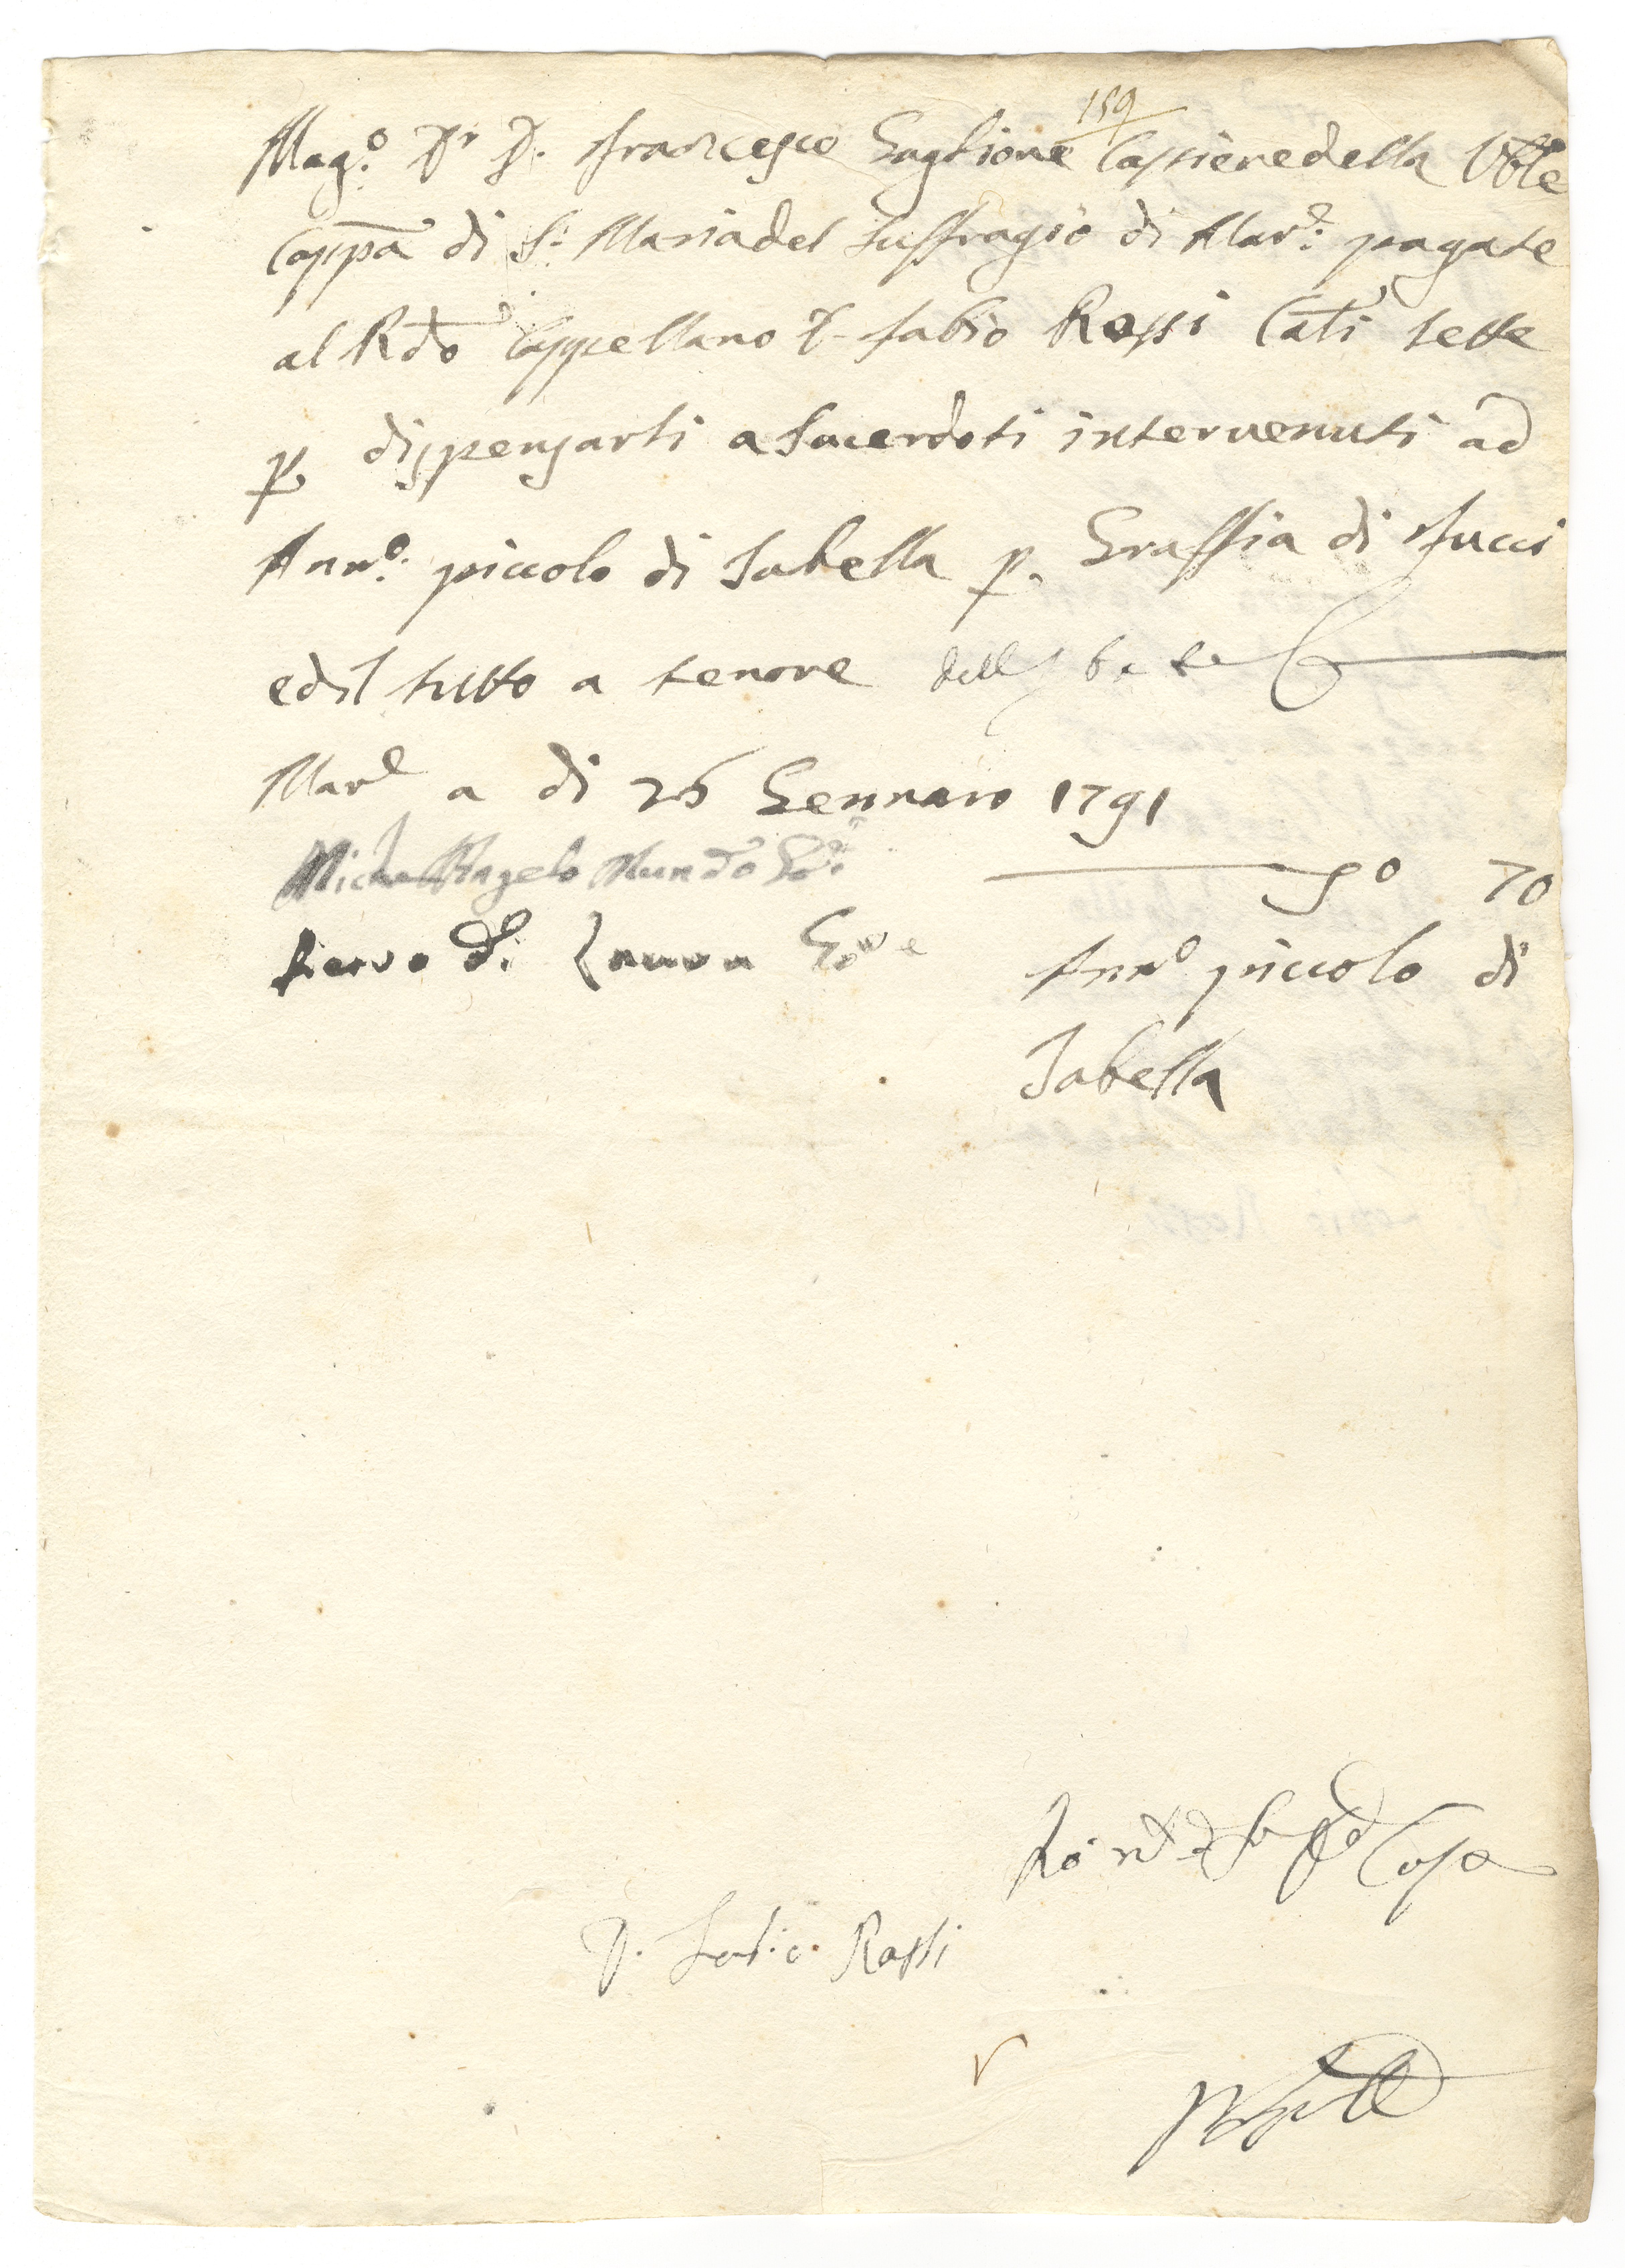 159
Mag.º Dr D. Francesco Guglione Cassiere della Vble
Cappa di S: Maria del Suffragio di Mar.e: pagate
al Rdo Cappellano D. Fabio Rossi Cati sette
p. dispensarli a Sacerdoti intervenuti ad
Ann.º: piccolo di Tabella p. Graffia di Fucci
ed il tutto a tenore
Mare a di 26 Gennaro 1791
Michel'Angelo Mundo
50 70
Annº piccolo di
Tabella
D. Fabio Rossi